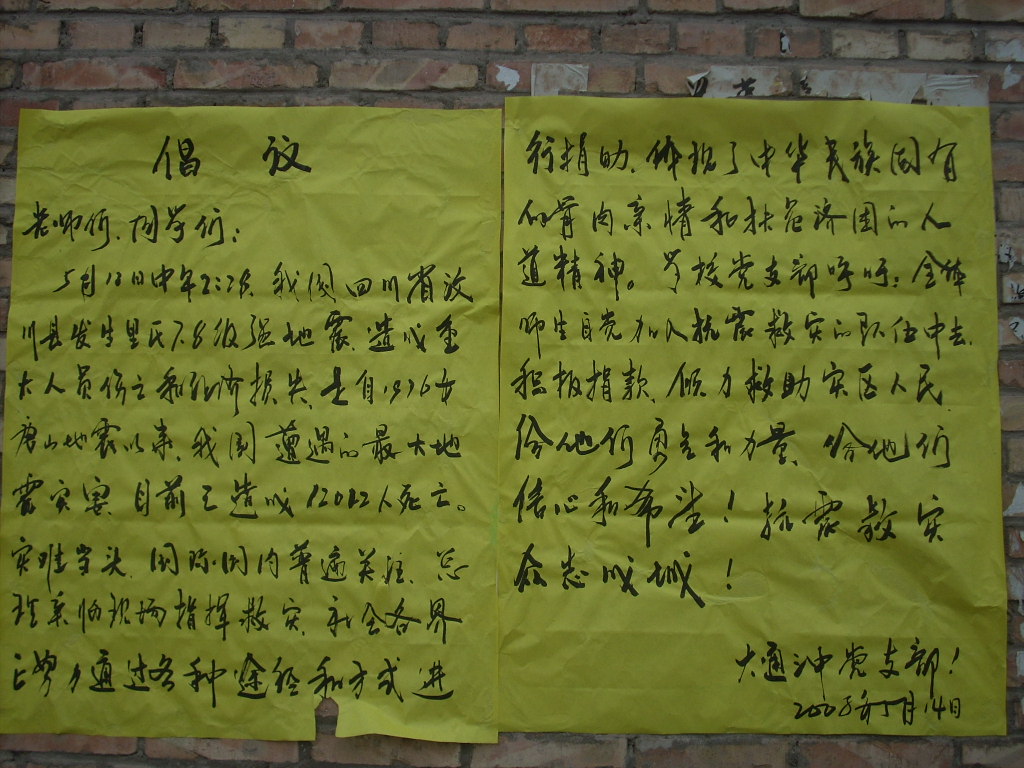 倡议
老师们、同学们:
5月12日中午2:28,我国四川省汶
川县发生里氏7.8级强地震,造成重
大人员伤亡和经济损失,是自1976年
唐山地震以来,我国遭遇的最大地
震灾害,目前已造成12012人死亡。
灾难当头,国际国内普遍关注,总
理亲临现场指挥救灾,社会各界
已努力通过各种途径和方式进
行捐助,体现了中华民族固有
的骨肉亲情和扶危济困的人
道精神。学校党支部呼吁:全体
师生自觉加入抗震救灾的队伍中去,
积极捐款,倾力救助灾区人民,
给他们勇气和力量,给他们
信心和希望!抗震救灾
众志成城!
大通冲党支部!
2008年5月14日